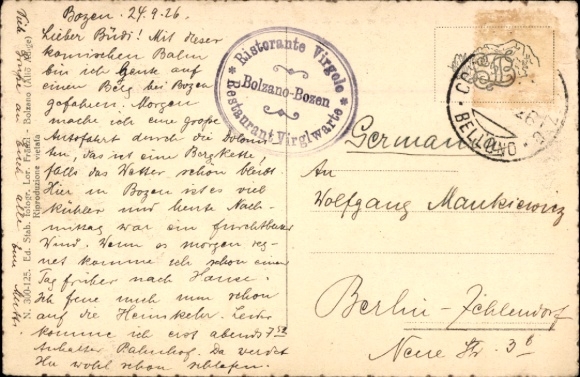 Bozen. 24.9.26.
Lieber Budi! Mit dieser
komischen Bahn
bin ich heute auf
einen Berg bei Bozen
gefahren. Morgen
mache ich eine große
Autofahrt durch die Dolomi-
ten, das ist eine Bergkette,
falls das Wetter schön bleibt.
Hier in Bozen ist es viel
kühler und heute Nach-
mittag war ein furchtbarer
Wind. Wenn es morgen reg-
net komme ich schon einen
Tag früher nach Hause.
Ich freue mich nun schon
auf die Heimkehr. Leider
komme ich erst abends 7
Anhalter Bahnhof. Da werdet
Ihr wohl schon schlafen.
Viele Grüße an Euch alle
N. 300-125. Ed. Stab. Fotogr. Lor. Fränzl - Bolzano (Alto Adige)
Riproduzione vietata
* Ristorante Virgolo *
Bolzano-Bozen
Restaurant Virglwarte
BELLUNO
Germania
An
Wolfgang Mankiewicz
Berlin-Zehlendorf
Neue Str. 3b